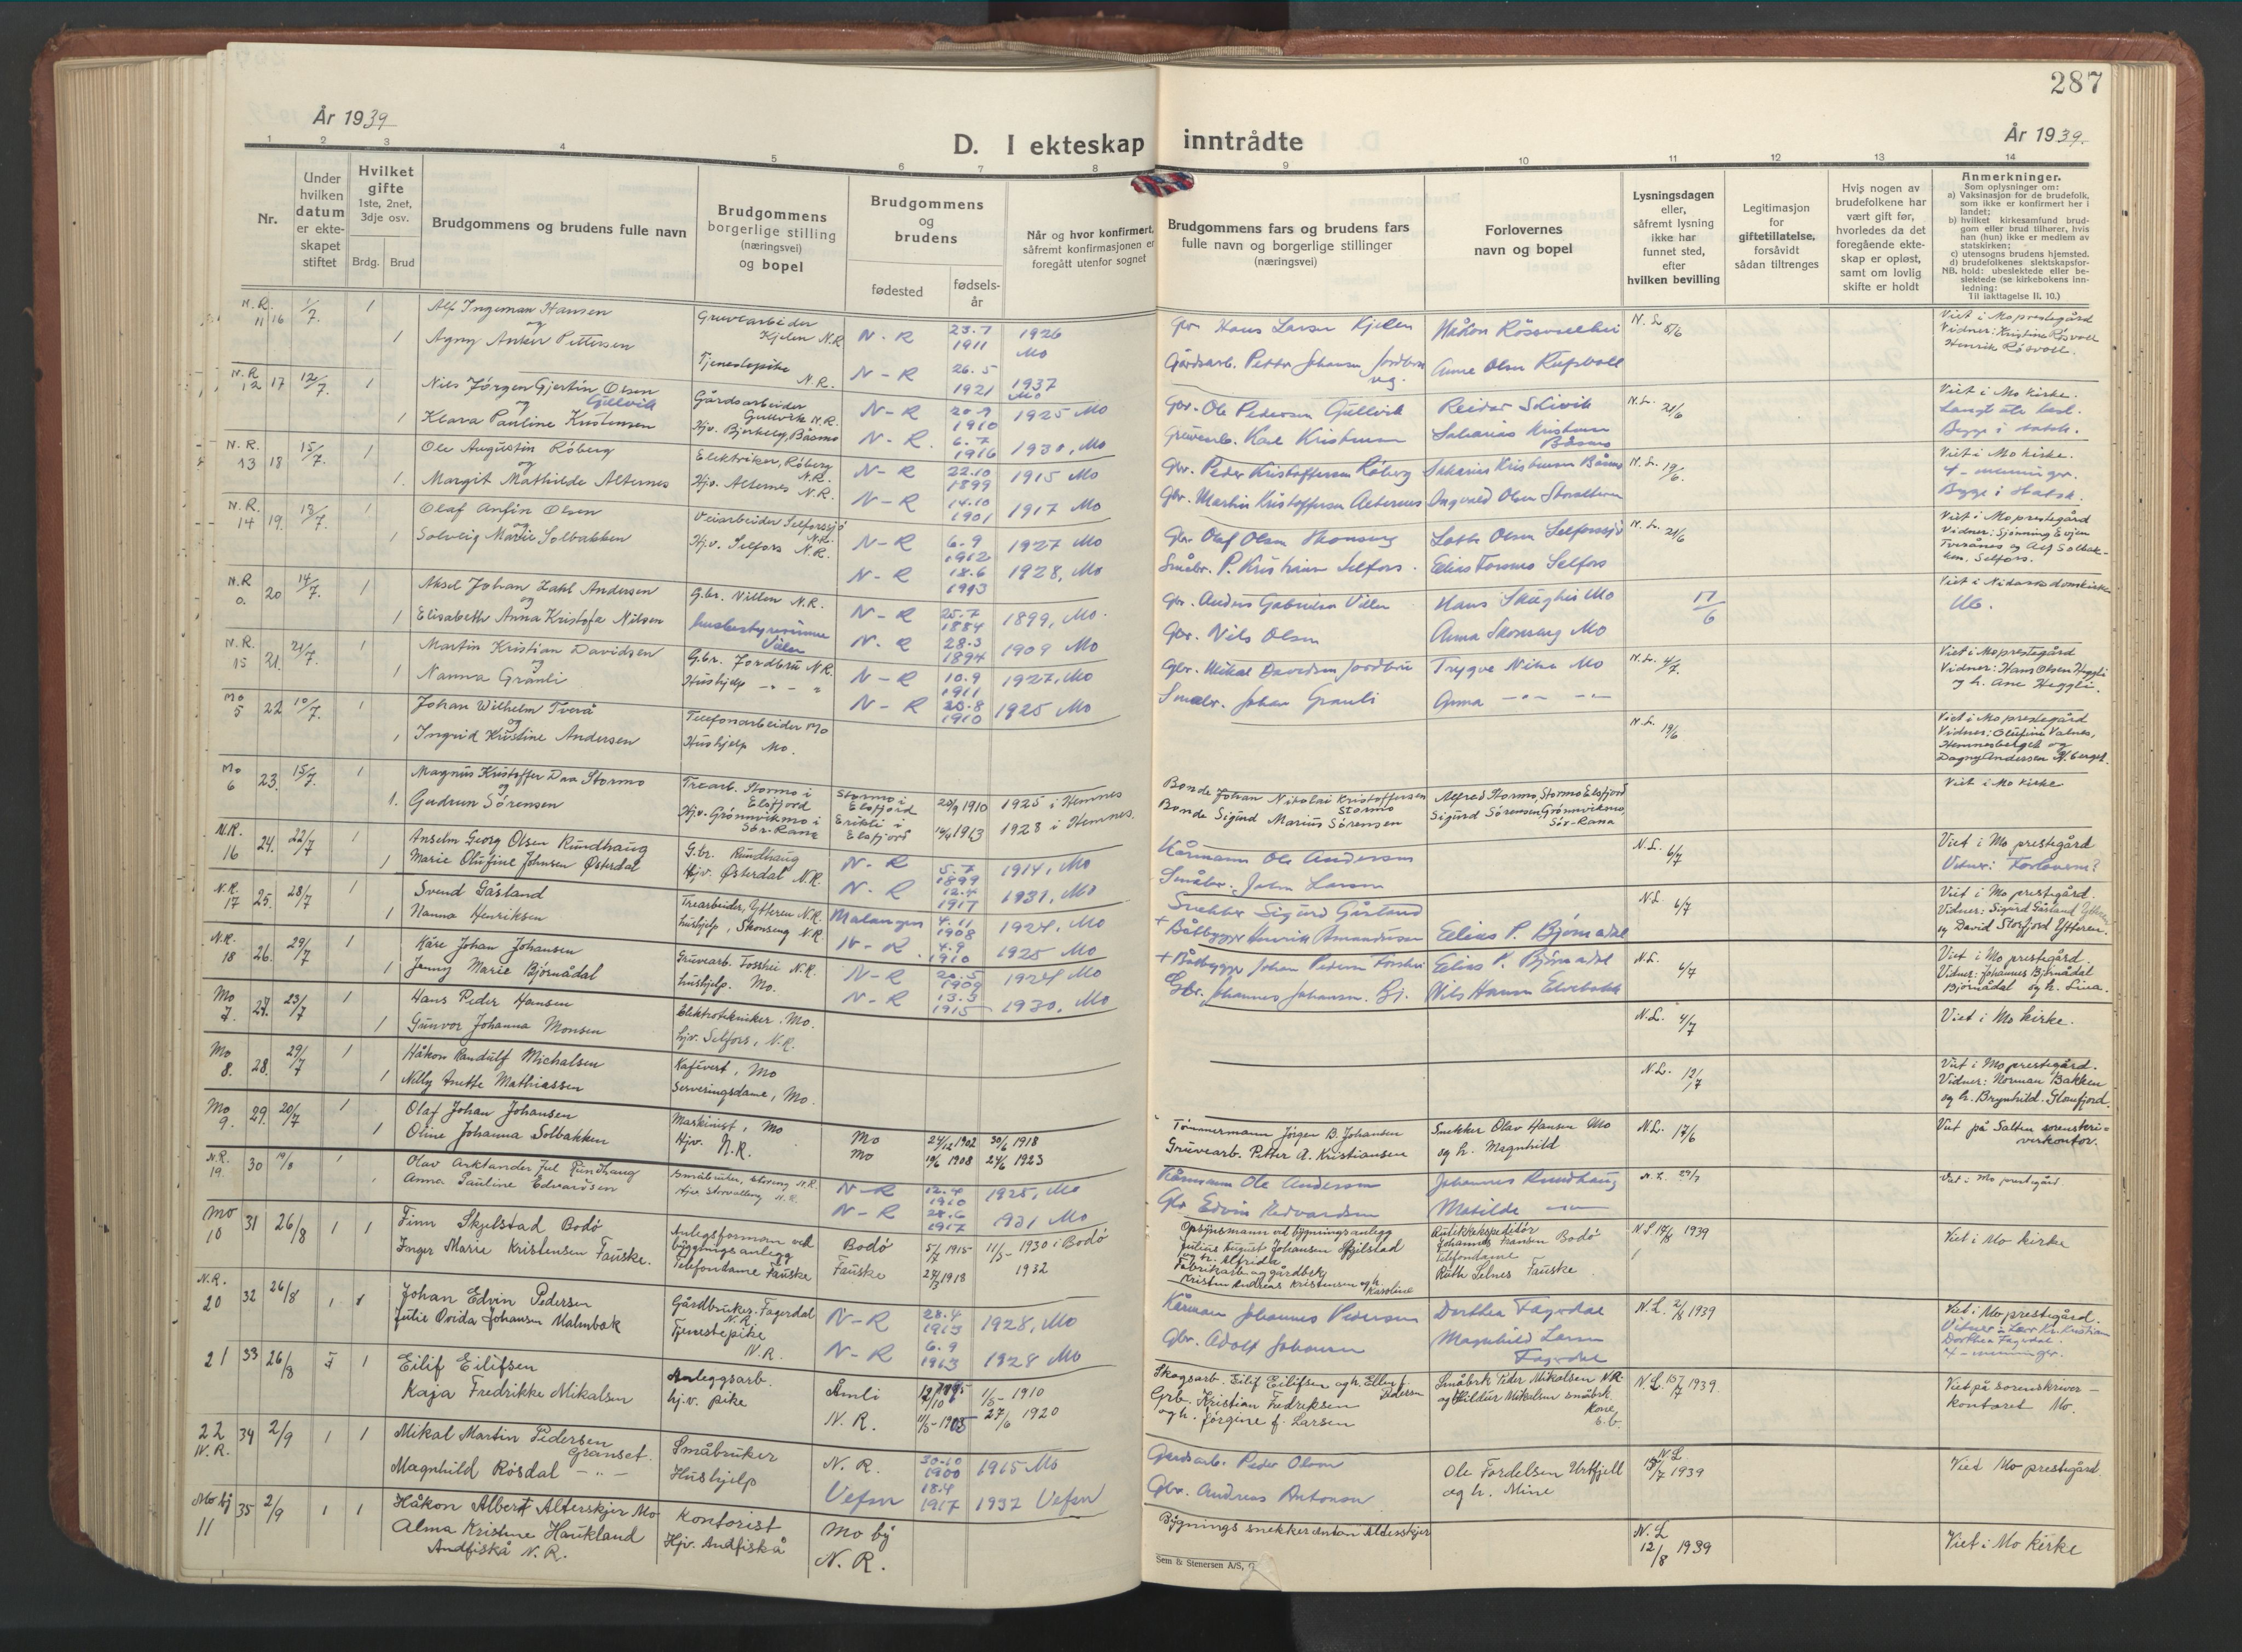 287
År 1939
År 1939.
D. I ekteskap inntrådte
1 2 3 4 5 6 7 8 9 10 11 12 13 14
Nr.
Under
hvilken
datum
er ekte-
skapet
stiftet
Hvilket
gifte
1ste, 2net,
3dje osv.
Brdg. Brud
Brudgommens og brudens fulle navn
Brudgommens
borgerlige stilling
(næringsvei)
og bopel
Brudgommens
og
brudens
fødested
fødsels-
år
Når og hvor konfirmert,
såfremt konfirmasjonen er
foregått utenfor sognet
Brudgommens fars og brudens fars
fulle navn og borgerlige stillinger
(næringsvei)
Forlovernes
navn og bopel
Lysningsdagen
eller,
såfremt lysning
ikke har
funnet sted,
efter
hvilken bevilling
Legitimasjon
for
giftetillatelse,
forsåvidt
sådan tiltrenges
Hvis nogen av
brudefolkene har
vært gift før,
hvorledes da det
foregående ekte-
skap er opløst,
samt om lovlig
skifte er holdt
Anmerkninger.
Som oplysninger om:
a) Vaksinasjon for de brudefolk,
som ikke er konfirmert her i
landet;
b) hvilket kirkesamfund brud-
gom eller brud tilhører, hvis
han (hun) ikke er medlem av
statskirken;
c) utensogns brudens hjemsted.
d) brudefolkenes slektskapsfor-
NB. hold: ubeslektede eller be-
slektede (se kirkebokens inn-
ledning:
Til iakttagelse II. 10.)
N.R. 11 16 1/7. 1 Alf Ingeman Hansen Gruvearbeider Kjelen N.R N-R 23.7 1911 1926 Mo Gbr Hans Larsen Kjelen N.L. 5/6 Viet i Mo prestegård
og Vidner: Kristine Røsvoll
1 Agny Anker Pettersen Tjenestepike N.R. N-R 26.5 1921 1937 Mo Gårdsarb. Petter Johansen Henrik Røsvoll.
N.R. 12 17 12/7. 1 Nils Jørgen Gjertin Olsen Gullvik Gårdsarbeider Gullvik N.R. N-R 1910 1925 Mo Gbr. Ole Pedersen Gullvik N.L. 21/6 Viet i Mo kirke.
og
1 Klara Pauline Kristensen Hjv. Bjerkelg, Båsmo N-R. 6.7 1916 1930, Mo Gruvearb. Karl Kristensen Sakarias Kristensen Båsmo
N.R. 13 18 15/7. 1 Ole Augustin Røberg Elektriker, Røberg N.R. N-R 22.10 1899 1915 Mo Gbr. Peder Kristoffersen Røberg Sakarias Kristensen Båsmo N.L. 19/6. Viet i Mo kirke.
og 4-menninger.
1. Margit Mathilde Alternes Hjv. Alternes N.R. N-R 14.10 1901 1917 Mo Gbr. Martin Kristoffersen Alternes Ingvald Olsen
N.R. 14 19. 13/7. 1 Olaf Anfin Olsen Veiarbeider Selforssjö N.R. N-R 6.9 1912 1927 Mo Gbr Olaf Olsen Skonseng N.L. 21/6 Viet i Mo prestegård
og Vidner: Sjønning Evjen
1 Solveig Marie Solbakken Hjv. Selfors N.R. N-R 18.6 1913 1928, Mo Småbr. P. Kristian Selfors. Elias Forsmo Selfors Tverånes og Alf Solbak-
ken, Selfors.
N.R o. 20 14/7. 1 Aksel Johan Zahl Andersen G.br. Villen N.R. N-R 25.7 1884 1899, Mo. Gbr. Anders Gabrielsen Villen Mo 17/6 Viet i Nidarosdomkirke
og
1 Elisabeth Anna Kristofa Nilsen husbestyrerinne N-R. 28.3 1894 1909 Mo Gbr. Nils Olsen Anna Skonseng Mo
N.R. 15 21. 21/7. 1 Martin Kristian Davidsen G.br. Jordbru N.R. N-R 10.9 1911 1927, Mo Gbr. Mikal Davidsen Jordbru Trygve Mo N.L. 4/7. Viet i Mo prestegård
og Vidner: Hans Olsen Heggli
1 Nanna Granli Hushjelp - " - " N-R 28.8 1910 1925 Mo Småbr. Johan Granli Anna -"- -"- og h. Ane Heggli.
Mo 5 22 10/7. 1 Johan Wilhelm Tverå Telefonarbeider Mo N.L. 19/6 Viet i Mo prestegård
og Vidner: Olufine Valnes,
1 Ingrid Kristine Andersen Hushjelp Mo. Hemnesberget og
Dagny Andersen H.berget.
Mo 6 23. 15/7. 1 Magnus Kristoffer Daa Stormo Trearb. Stormo i Elsfjord Stormo i Elsfjord 20/9 1910 1925 i Hemnes Bonde Johan Nikolai Kristoffersen Stormo Alfred Stormo, Stormo Elsfjord Viet i Mo kirke
og
1. Gudrun Sörensen Hjv. Grönnvikmo i Sör-Rana Eriksli i Elsfjord 1913 1928 i Hemnes. Bonde Sigurd Marius Sörensen Sigurd Sörensen, Grönnvikmo, Sör-Rana
N.R. 16 24. 22/7 1 Anselm Georg Olsen Rundhaug G.br. Rundhaug N-R 5.7 1899 1914, Mo Kårmann Ole Andersen N.L. 6/7 Viet i Mo prestegård
1 Marie Olufine Johnsen Østerdal Hjv. Østerdal N.R. N-R 12.4 1917 1931, Mo Småbr. John Larsen Vitner: Forloverne?
N.R. 17 25. 28/7 1 Svend Gåsland Trearbeider, Ytteren N.R. Malangen 4.11 1908 1924, Mo Snekker Sigurd Gåsland N.L. 6/7 Viet i Mo prestegård.
1 Nanna Henriksen hushjelp, Skonseng N.R N-R. 4.9 1910 1925 Mo + Båtbygger Henrik Amundsen Elias P. Bjørnådal Vidner: Sigurd Gåsland Ytteren
og David Storfjord Ytteren.
N.R. 18 26. 29/7 1 Kåre Johan Johansen Gruvearb. Fosshei N.R. N-R 20.5 1909 1924 Mo + Båtbygger Johan Pedersen Fosshei Elias P. Bjørnådal N.L. 6/7 Viet i Mo prestegård.
1 Jenny Marie Björnådal hushjelp. Mo. N-R 13.3 1915 1930, Mo Gbr. Johannes Johansen. Bj. Nils Hansen Vidner: Johannes Björnådal
Björnådal og h. Lina.
Mo 7. 27. 23/7 1 Hans Peder Hansen Elektrotekniker. Mo. N.L. 4/7 Viet i Mo kirke.
1 Gunvor Johanna Monsen hjv. Selfors, N.R.
Mo 8. 28. 29/7 1 Håkon Randulf Michalsen Kafévert, Mo N.L. 12/7 Viet i Mo prestegård.
1 Nelly Anette Mathiassen Serveringsdame, Mo. Vidner: Norman Bakken
og h. Brynhild. Glomfjord.
Mo 9. 29. 20/7 1 Olaf Johan Johansen Maskinist, Mo Mo 24/12 1902 30/6 1918 Tömmermann Jörgen B. Johansen Snekker Olav Hansen Mo N.L. 17/6 Viet på Salten sorenskri=
1 Oline Johanna Solbakken Hjv. N.R. Mo 19/6 1908 24/6 1923 Gruvearb. Petter A. Kristiansen og h. Magnhild verkontor.
N.R. 19. 30 19/8 1 Olav Arktander Jul Rundhaug Småbruker, N.R. N-R 12.4 1910 1925, Mo Kårmann Ole Andersen Johannes Rundhaug N.L. 29/7 Viet i Mo prestegård.
Anna Pauline Edvardsen N.R. N-R 28.6 1917 1931 Mo Gbr Edvin Edvardsen Matilde -"-
Mo 10 31 26/8 1 1 Finn Skjelstad Bodö Anlegsformann ved bygningsanlegg Bodö 5/7 1915 11/5- 1930 i Bodö Opsynsmann ved bygningsanlegg Julius August Johansen Skjelstad og h. Alfrida Butikkekspeditör Johannes Fransen Bodö N.L. 17/8 1939 Viet i Mo kirke
Inger Marie Kristensen Fauske. Telefondame Fauske Fauske 1918 1932 Fabrikarb. og gårdbr. Kristen Andreas Kristensen og h. Karoline Telefondame Ruth Selnes Fauske
N.R. 20 32 26/8 1 1 Johan Edvin Pedersen Gårdbruker. Fagerdal N.R. N-R 28.4 1913 1928, Mo Kårmann Johannes Pedersen Dorthea Fagerdal N.L. 2/8 1939 Viet i Mo prestegård.
Julie Ovida Johansen Malmbak Tjenestepike N.R. N-R 6.9 1913 1928 Mo Gbr. Adolf Johansen Magnhild Larsen Fagerdal Dorthea Fagerdal.
4-menninger.
21 33 26/8 1 Eilif Eilifsen Anleggsarb. Åmli 1/5- 1910 Skogsarb. Eilif Eilifsen og h. Ellen f. Pedersen Småbrk Peder Mikalsen N.R. N.L. 15/7 1939 Viet på sorenskriver-
Kaja Fredrikke Mikalsen hj.v. pike N.R. 11/5-1905 27/6 1920 Grb. Kristian Fredriksen og h. Jörgine f. Larsen og Hildur Mikalsen småbrk. kone, s.b. kontoret Mo.
22 N.R. 34 2/9 1 1 Mikal Martin Pedersen Granset. Småbruker N.R. 30.10 1900 1915 Mo Gardsarb. Peder Olsen Ole Fordelsen Urtfjell N.L 15/7 1939 Viet Mo prestegård
Magnhild Rösdal - " - Hushjelp Vefsn 18.4 1917 1932 Vefsn Gbr. Andreas Antonsen og h. Mine
Mo bj 11 35 2/9 1 1 Håkon Albert Alterskjer Mo Kontorist Mo by Bygnings snekker Anton Alderskjer N.L 12/8 1939 Viet i Mo kirke
Alma Kristine Haukland Hjv. Andfiskå N.R.
Andfiskå N.R.
Sem & Stenersen A/S,